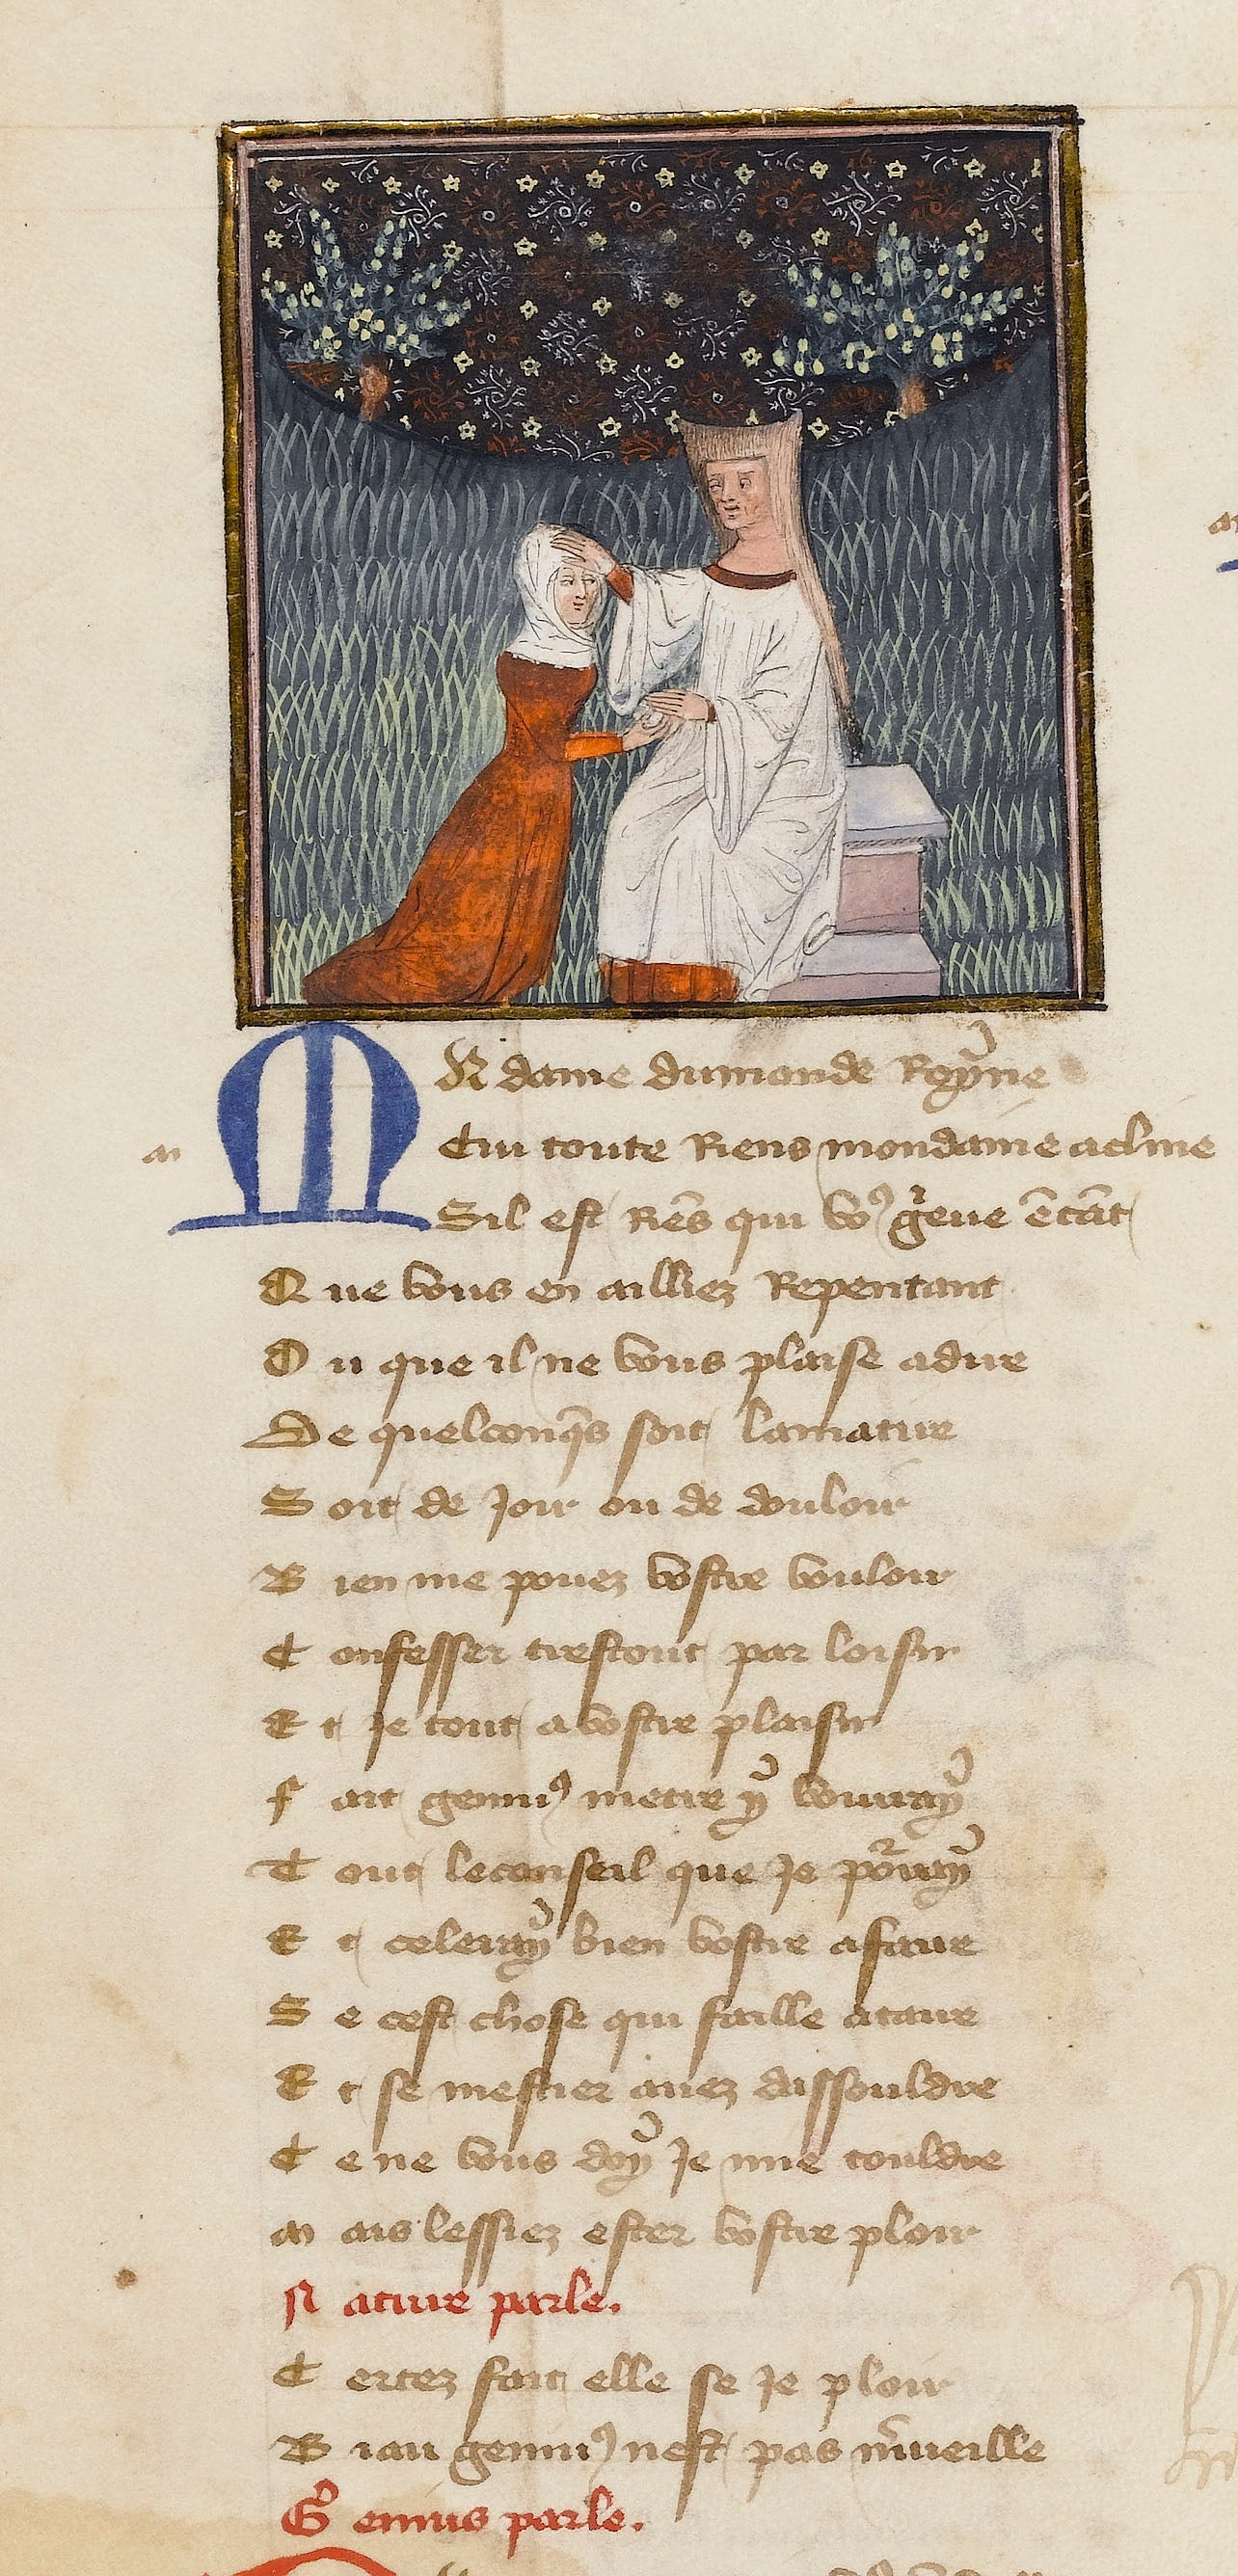 MA dame dumonde Royne
Cui toute Riens mondaine acline
Sil est Riēs qui voꝰ gͥeue ētāt
Que vous en ailliez Repentant
Ou que il ne vous plaise adire
De quelconq̄s soit lamatire
Soit de Joir ou de douloir
Bien me pouez vostre vouloir
Confesser trestout par loisir
Et Je tout a vostre plaisir
fait geniuꝰ metre y vourray
Tout leconseil que Je porray
Et celeray bien vostre afaire
Se cest chose qui faille ataire
Et se mestier auez dassouldre
Ce ne vous doy Je mie touldre
mais lessiez ester vostre plour
Nature parle.
Certez fait elle se Je plour
Biau geniuꝰ nest pas m̄ueille
Genius parle.